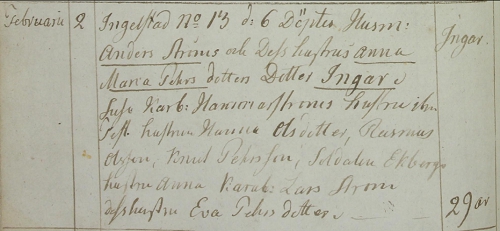 Februarii 2 Ingelstad No 13 d: 6 Döptes Husm: Ingar.
Anders Ströms och Dess hustrus Anna
Maria Pehrs dotters Dotter Ingar.
Susc Karb: Hammarströms hustru
Test. hustrun Hanna Olsdotter, Rasmus
Knut Pehrsson, Soldaten Ekbergs
hustru Anna Karab: Lars Ström
dess hustru Eva Pehrs dotter. 29 år